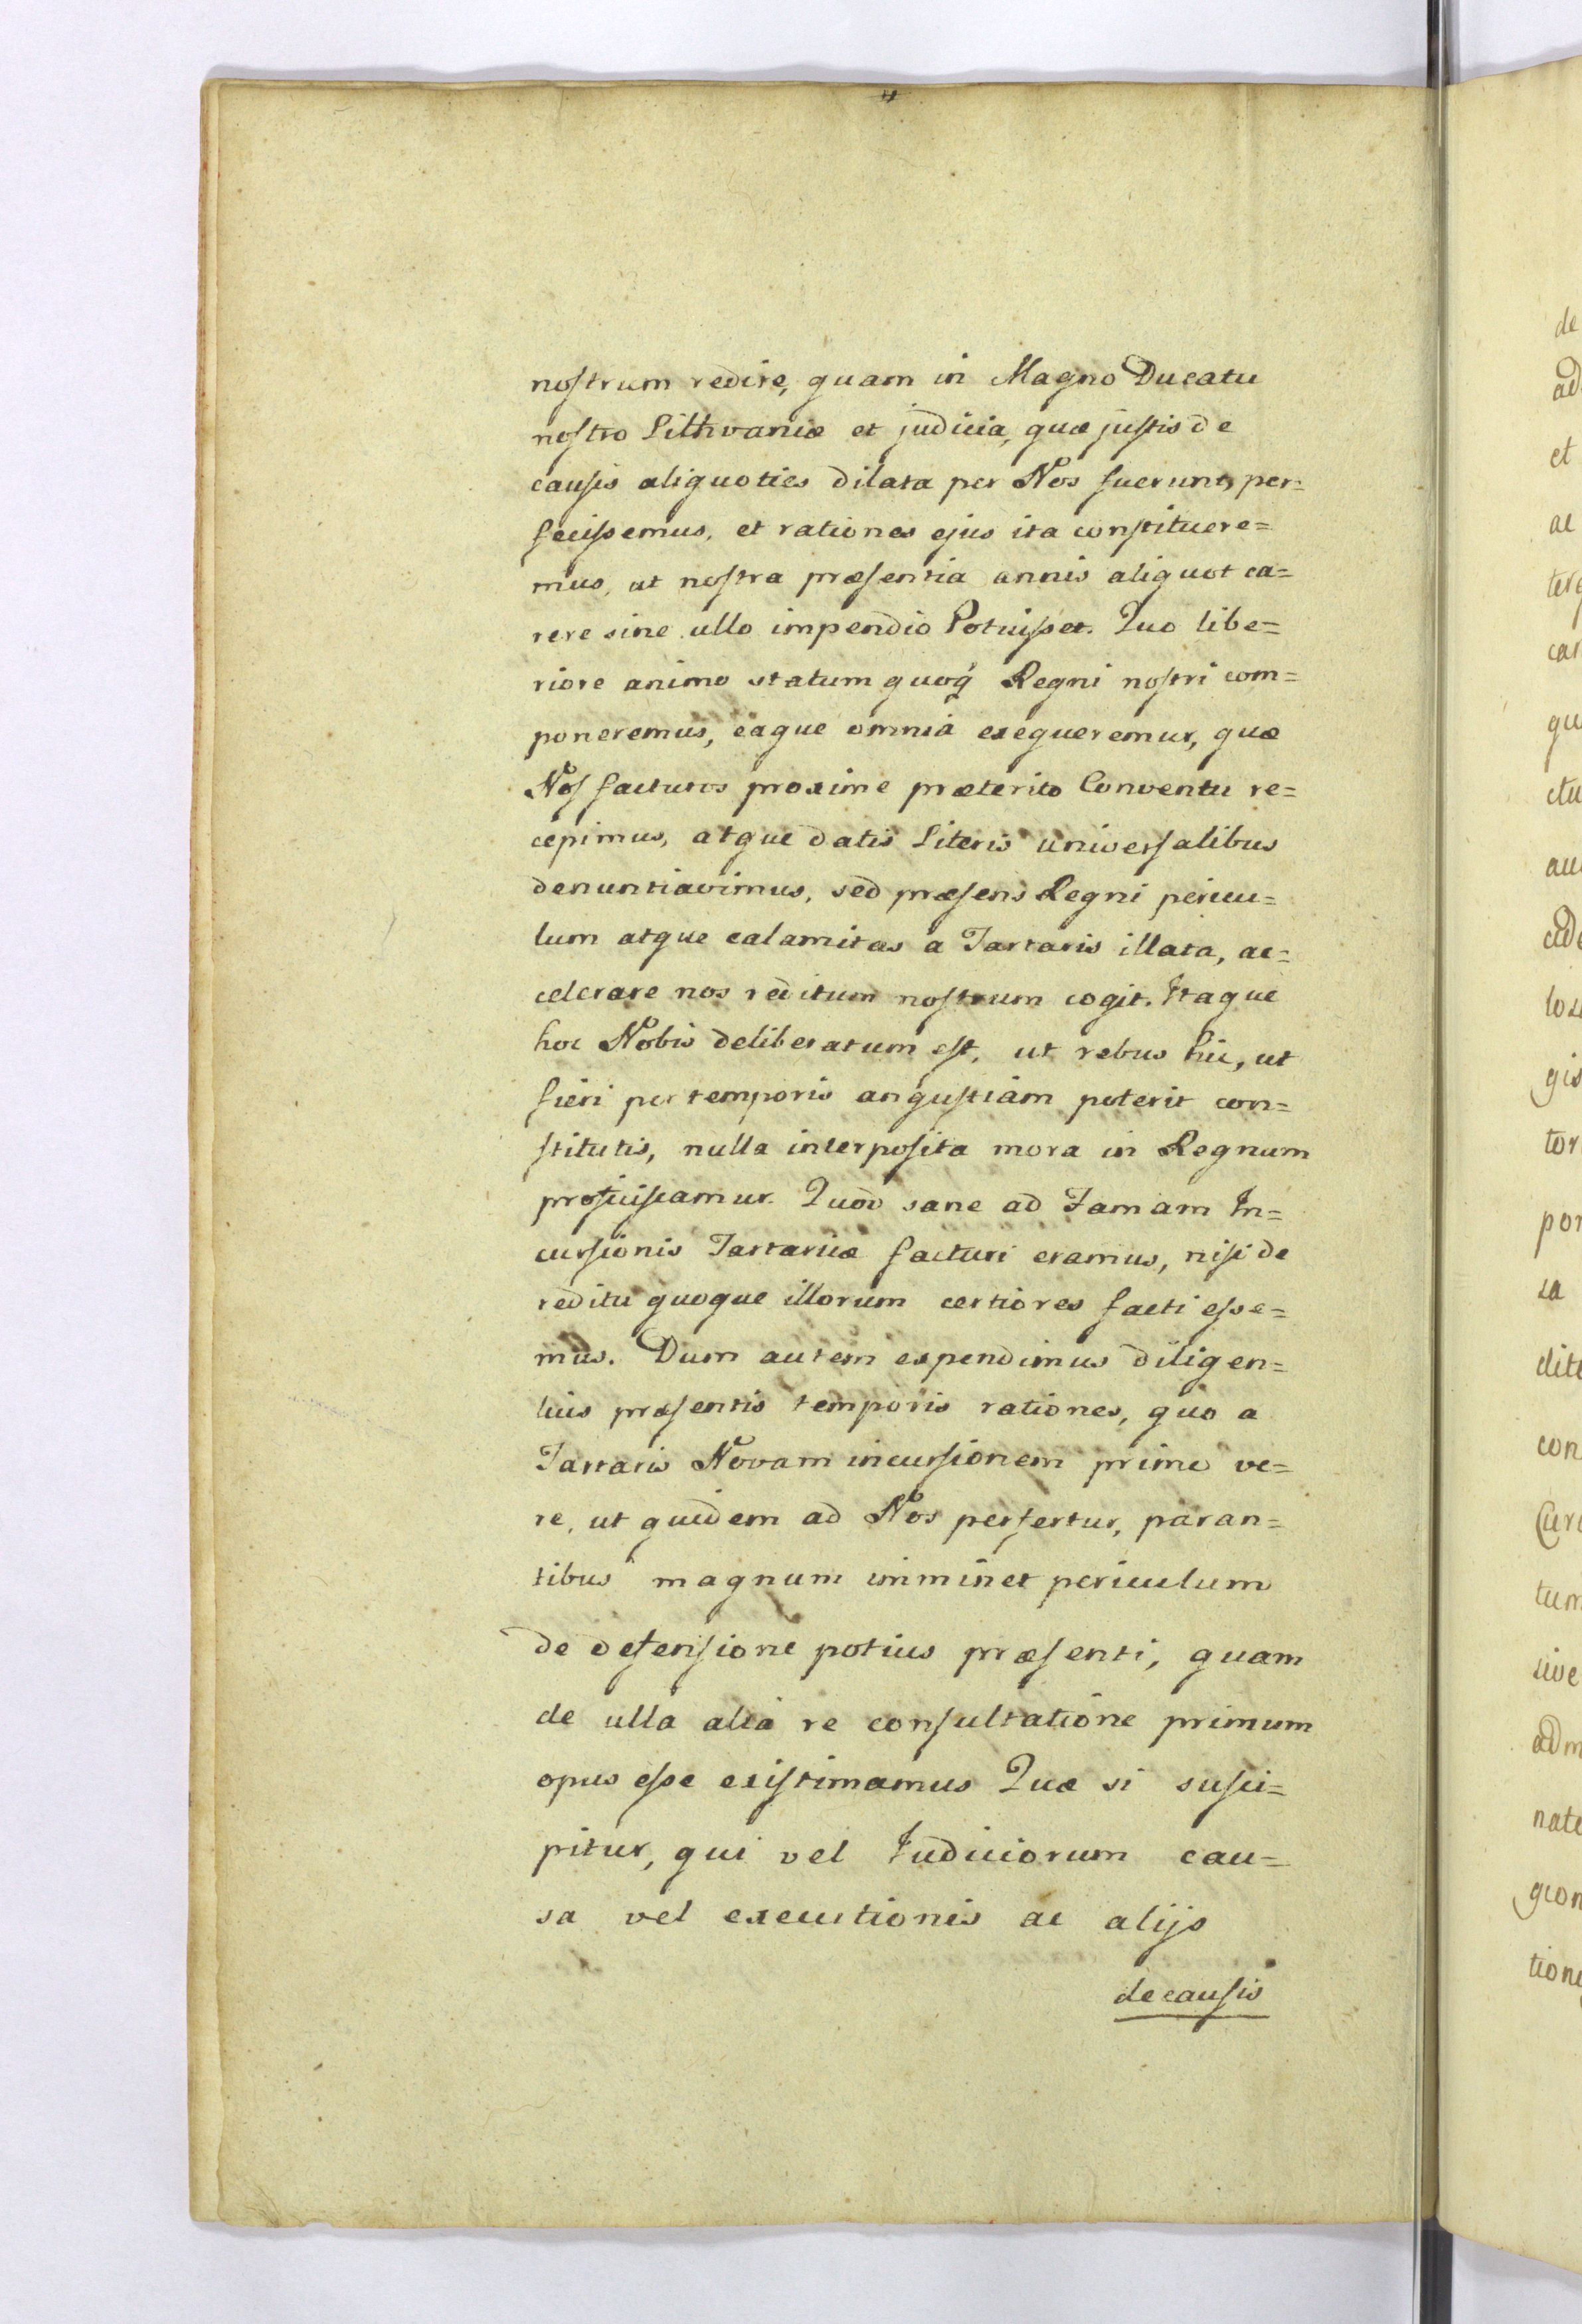 nostrum redire, quam in Magno Ducatu
nostro Lithvaniæ et judicia, quæ justis de
causis aliquoties dilata per Nos fuerunt, per=
fecissemus, et rationes ejus ita constituere=
mus, ut nostra præsentia annis aliquot ca=
rere sine ullo impendio Potuisset. Quo libe=
riore animo statum quoq́ Regni nostri com=
poneremus, eaque omnia exequeremur, quæ
Nos facturos proxime præterito Conventu re=
cepimus, atque datis Literis universalibus
denuntiavimus, sed præsens Regni pericu=
lum atque calamitas a Tartaris illata, ac=
celerare nos reditum nostrum cogit. Itaque
hoc Nobis deliberatum est, ut rebus hic, ut
fieri per temporis angustiam poterit con=
stitutis, nulla interposita mora in Regnum
proficiscamur. Quod sane ad Famam In=
cursionis Tartaricæ facturi eramus, nisi de
reditu quoque illorum certiores facti esse=
mus. Dum autem expendimus diligen=
tius præsentis temporis rationes, quo a
Tartaris Novam incursionem primo ve=
re, ut quidem ad Nos perfertur, paran=
tibus magnum imminet periculum
de defensione potius præsenti, quam
de ulla alia re consultatione primum
opus esse existimamus Quæ si susci=
pitur, qui vel Iudiciorum cau=
sa vel executionis ac alijs
de causis
de
ad
et
ac
terq
car
qu
ctu
au
gis
tor
por
sa
dit
con
tum
sive
adm
nate
gion
tion